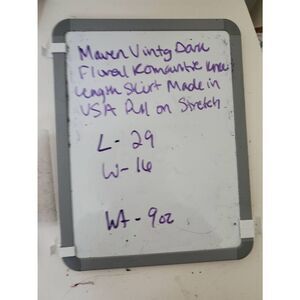 Maven Vintg Dark
Floral Romantic Knee
Length Skirt Made in
USA Pull on Stretch
L- 29
W- 16
Wt - 9oz